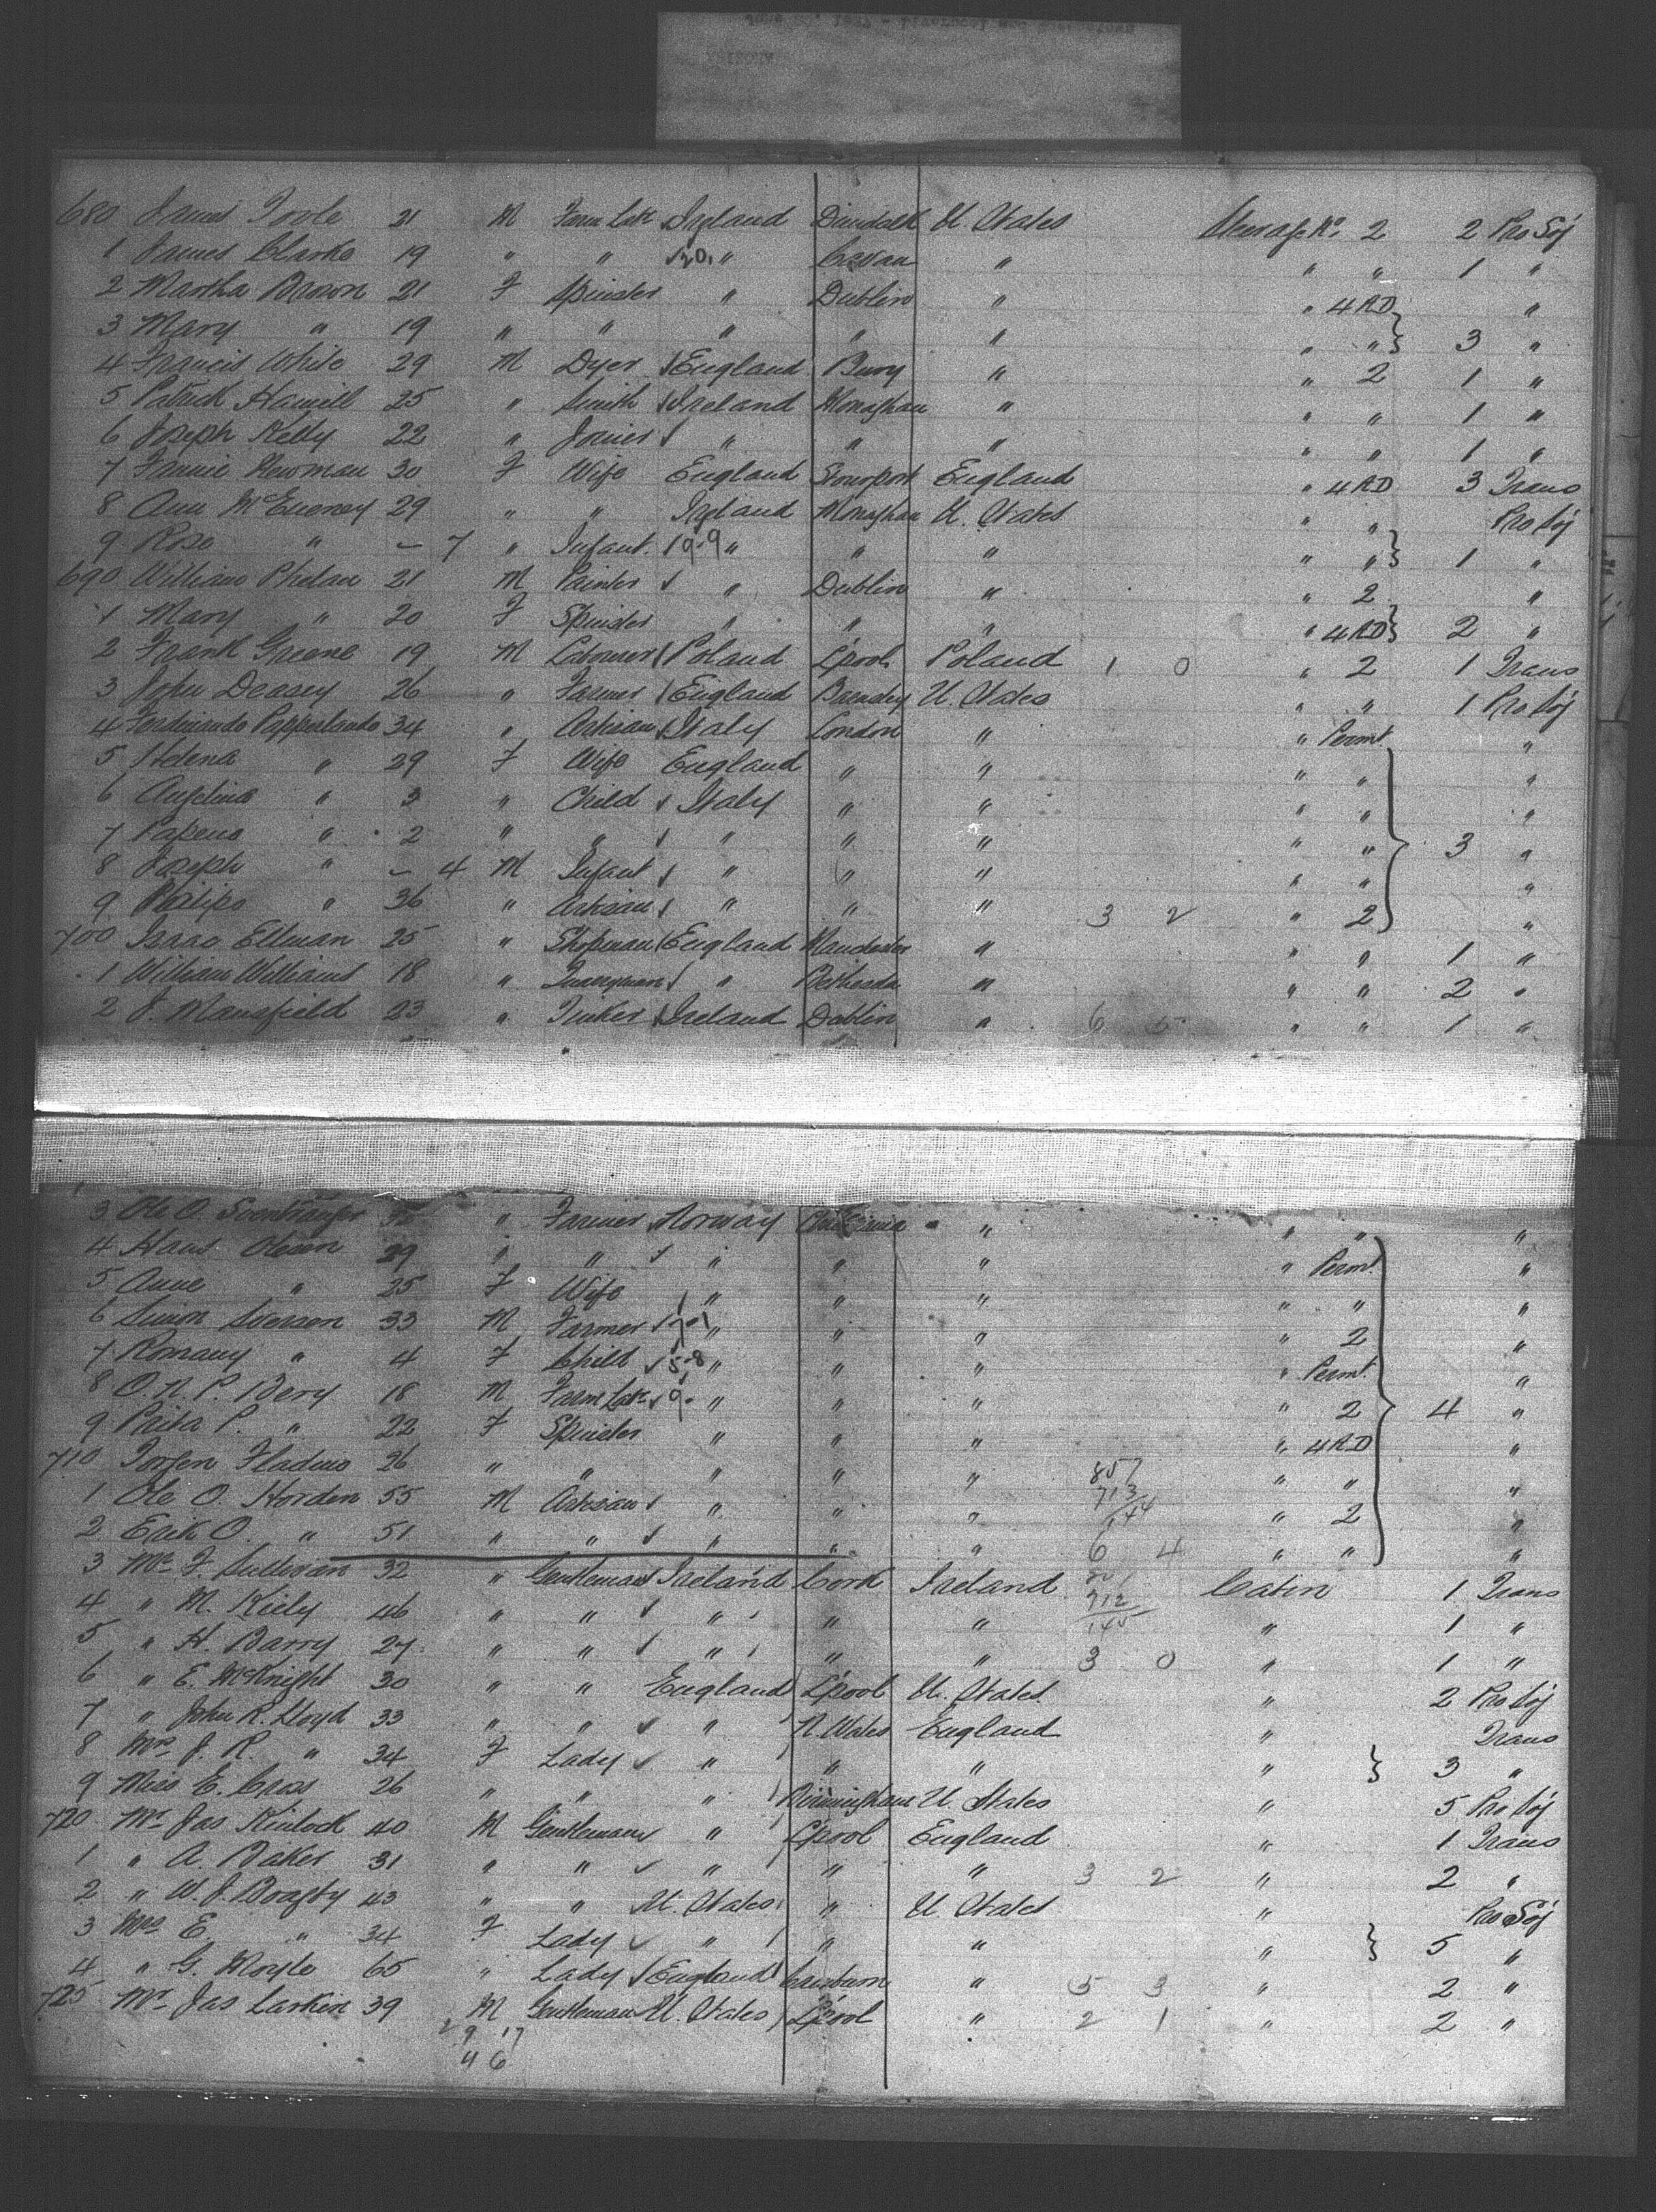 680 James Toole 21 M Farm Labr Ireland Dundalk U. States Steerage No. 2 2 Pro Soj
1 James Clarke 19 " " 20 " Cavan " " " 1 "
2 Martha Brown 21 F Spinster " Dublin " " 4 AD "
3 Mary " 19 " " " " " " " 3 "
4 Francis White 29 M Dyer England Bury " " 2 1 "
5 Patrick Hamill 25 " Smith Ireland Monaghan " " " 1 "
6 Joseph Kelly 22 " Joiner " " " " " 1 "
7 Fannie Newman 30 F Wife England Stourport England " 4 AD 3 Trans
8 Ann McEneney 29 " " Ireland Monaghan U. States " " Pro Soj
9 Rose " - 7 " Infant 9-9 " " " " " 1 "
690 William Phelan 21 M Painter " Dublin " " 2 "
1 Mary " 20 F Spinster " " " " 4 AD 2 "
2 Frank Greene 19 M Labourer Poland L'pool Poland 1 0 " 2 1 Trans
3 John Deasey 26 " Farmer England Barnsley U. States " " 1 Pro Soj
4 Ferdinando 34 " Artisan Italy London " " Permt "
5 Helena " 29 F Wife England " " " " "
6 Angelina " 3 " Child Italy " " " " "
7 " 2 " " " " " " " 3 "
8 Joseph " - 4 M Infant " " " " " "
9 Philipo " 36 " Artisan " " " 3 2 " 2 "
700 Isaac Ellman 25 " Shopman England Manchester " " " 1 "
1 William Williams 18 " Quarryman " Bethesda " " " 2 "
2 J. Mansfield 23 " Tinker Ireland Dublin " 6 5 " " 1 "
3 Ole O. " Farmer Norway " " " "
4 Hans Olesen 29 " " " " " " Permt. "
5 Anne " 25 F Wife " " " " " "
6 Simon Sverson 33 M Farmer 7-1 " " " " 2 "
7 Romany " 4 F Child 5-8 " " " " Permt. "
8 O. N. P. Berg 18 M Farm Labr 9- " " " " 2 4 "
9 Brita P. " 22 F Spinster " " " " 4 AD "
710 Torfen Fladmo 26 " " " " " 857 " " "
1 Ole O. Horden 55 M Artisan " " " 713 144 " 2 "
2 Erik O. " 51 " " " " " 6 4 " " "
3 Mr. F. Sullivan 32 " Gentleman Ireland Cork Ireland Cabin 1 Trans
4 " M. Kiely 46 " " " " " 712 145 " 1 "
5 " H. Barry 27 " " " " " 3 0 " 1 "
6 " E. McKnight 30 " " England L'pool U. States " 2 Pro Soj
7 " John R. Lloyd 33 " " " N. Wales England " Trans
8 Mrs. J. R. " 34 F Lady " " " " 3 "
9 Miss E. Cross 26 " " " Birmingham U. States " 5 Pro Soj
720 Mr. Jas Kinlock 40 M Gentleman " L'pool England " 1 Trans
1 " A. Baker 31 " " " " " 3 2 " 2 "
2 " W. J. 43 " " U. States " U. States " Pro Soj
3 Mrs E. " 34 F Lady " " " " 5 "
4 " G. Moyle 65 " Lady England " 5 3 " 2 "
725 Mr. Jas Larkin 39 M Gentleman U. States L'pool " 2 1 " 2 "
29 17
46